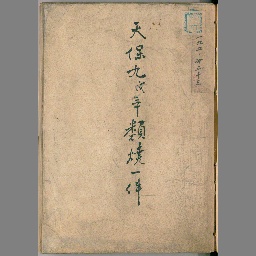 天保九戌年類焼一件